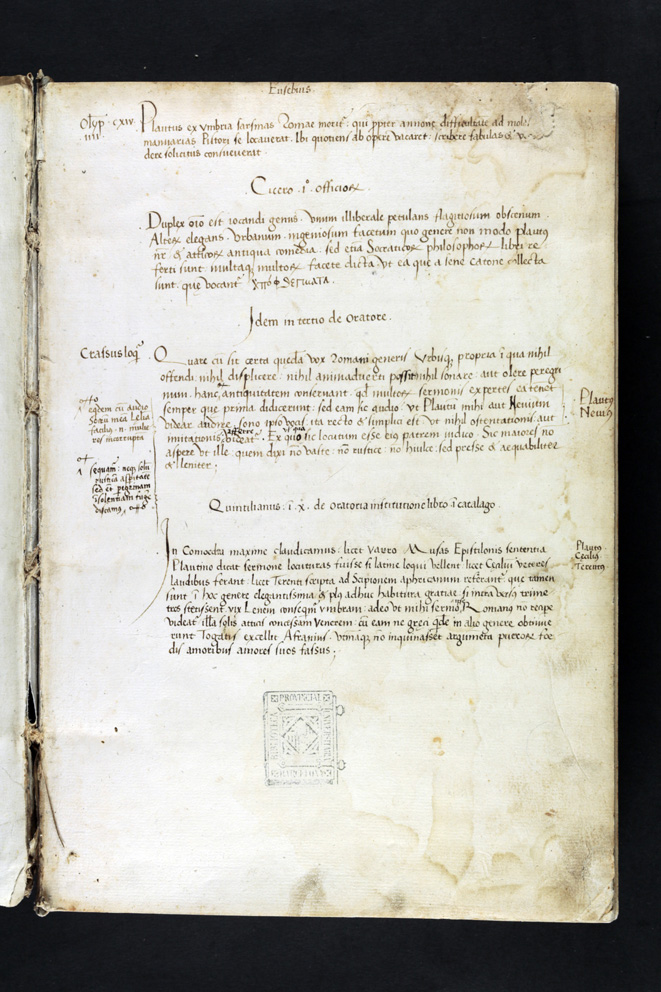 Eusebius.
Olyp. cxiv.
iiii
Plautus ex vmbria sarsinas Romae morit. qui ppter annone difficultate ad mola
manuarias Pistori se locauerat. Ibi quotiens ab opere vacaret. scribere fabulas &
dere solicitus consueuerat.
Cicero .1o. officioꝝ
Duplex oīo est iocandi genus. Vnum illiberale petulans flagitiosum obscenum.
Alteꝝ elegans. Vrbanum. ingeniosum facetum quo genere non modo plautꝯ
nr̄. & atticoꝝ antiqua comedia. sed etiā Socraticoꝝ philosophoꝝ libri re
ferti sunt. multaqꝫ multoꝝ facete dicta. Vt ea que a sene Catone collecta
sunt. que vocant
Idem in tertio de Oratore.
Crassus loq̄
Quare cū sit certa quedā vox Romani generis Vrbisqꝫ propria ī qua nihil
offendi. nihil displicere. nihil animaduerti possit nihil sonare. aut olere peregri
num. hanc antiquitatem conseruant. qd multoꝝ sermonis expertes ea tenēt
semper que prima didicerunt. sed eam sic audio. vt Plautū mihi aut Neuium
videar audire. sono ipso vocis ita recto & simplici est. vt nihil ostentationis aut
imitationis afferre videat. Ex quo sic locutum esse eiꝯ patrem iudico. Sic maiores no
aspere vt ille. quem dixi nō vaste. nō rustice. nō hiulce. sed presse & aequabiliter
& leniter.
eqdem cū audio
Socrū meā Leliā
faciliꝯ. n. mulie
res incorruptā
sequam. neqꝫ solū
rusticā aspitatē
sed et peginam
īsolentiam fugē
discamꝯ.
Plautꝯ
Neuiꝯ
Quintilianus. ī. x. de oratoria institutione libro ī catalago.
In Comoedia maxime claudicamus. licet Varro Musas Epistilonis sententia
Plautino dicat sermone locuturas fuisse si latine loqui vellent. licet Ceciliū veteres
laudibus ferant. licet Terenti scripta ad Scipionem aphricanum referant. que tamen
sunt ī hoc genere elegantissima & plꝯ adhuc habitura gratiae si intra versꝯ trime
tros stetissent. vix Leuem consequīr vmbram. adeo vt mihi sermo ip̄e Romanꝯ nō recipe
videat. illā solis atticis concessam Venerem. cū eam ne greci qdē in alio genere obtinue
runt. Togatis excellit Afranius. vtinaqꝫ nō inquinasset argumēta pueroꝝ foe
dis amoribus amores suos fassus.
Plautꝯ
Ceciliꝯ
Terentiꝯ
BIBLIOTECA PROVINCIAL UNIVERSITARIA BARCELONA